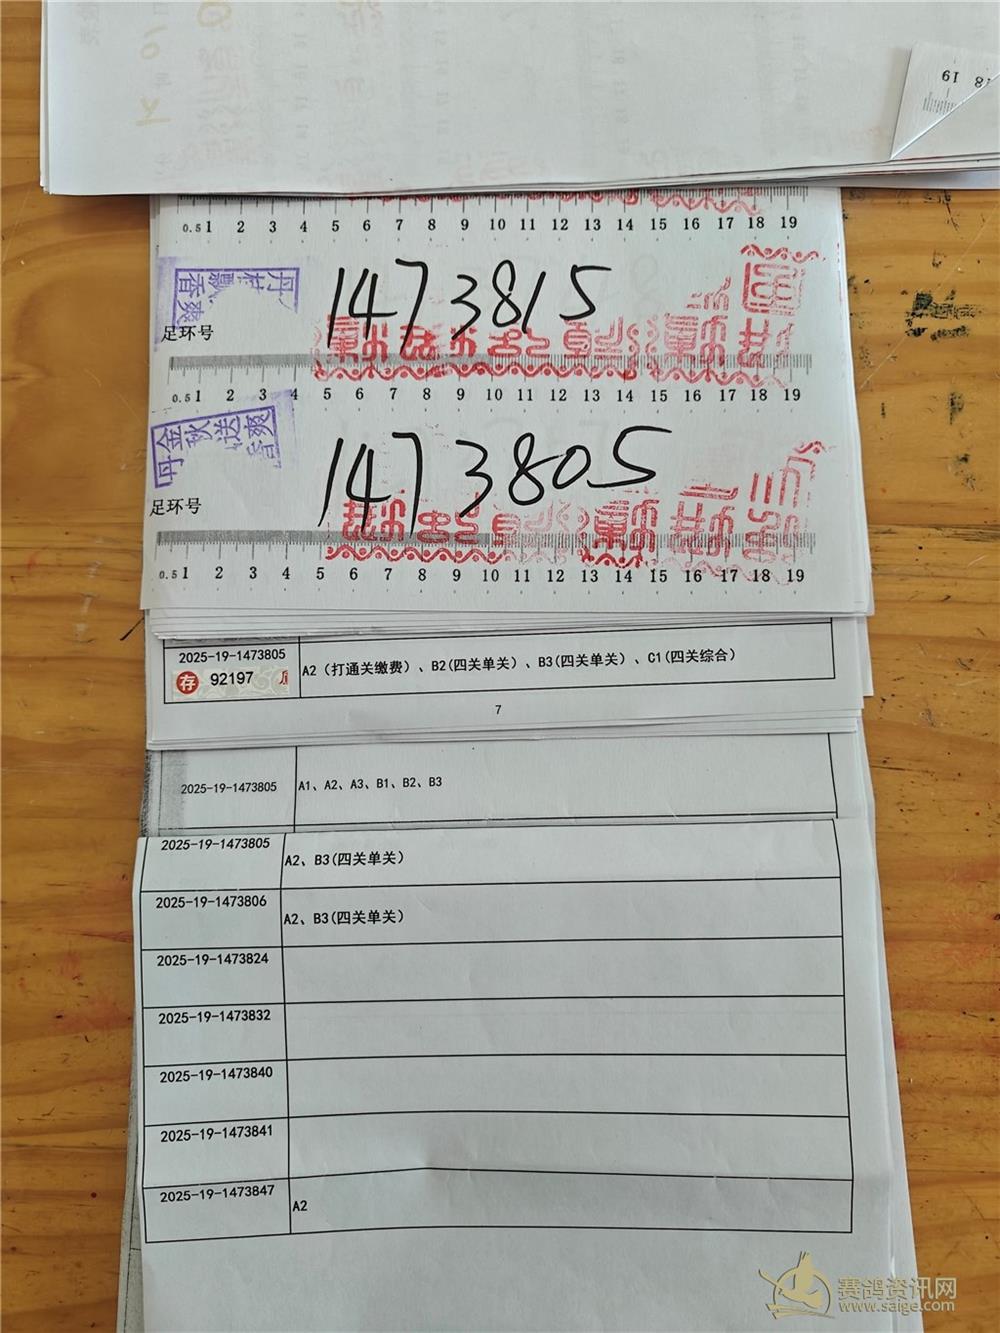 18 19
0.5 1 2 3 4 5 6 7 8 9 10 11 12 13 14 15 16 17 18 19
1473815
足环号
0.5 1 2 3 4 5 6 7 8 9 10 11 12 13 14 15 16 17 18 19
丹金秋送爽
1473805
足环号
0.5 1 2 3 4 5 6 7 8 9 10 11 12 13 14 15 16 17 18 19
2025-19-1473805
存 92197
A2（打通关缴费）、B2(四关单关)、B3(四关单关)、C1(四关综合)
7
2025-19-1473805 A1、A2、A3、B1、B2、B3
2025-19-1473805 A2、B3(四关单关)
2025-19-1473806 A2、B3(四关单关)
2025-19-1473824
2025-19-1473832
2025-19-1473840
2025-19-1473841
2025-19-1473847 A2
赛鸽资讯网
www.saige.com